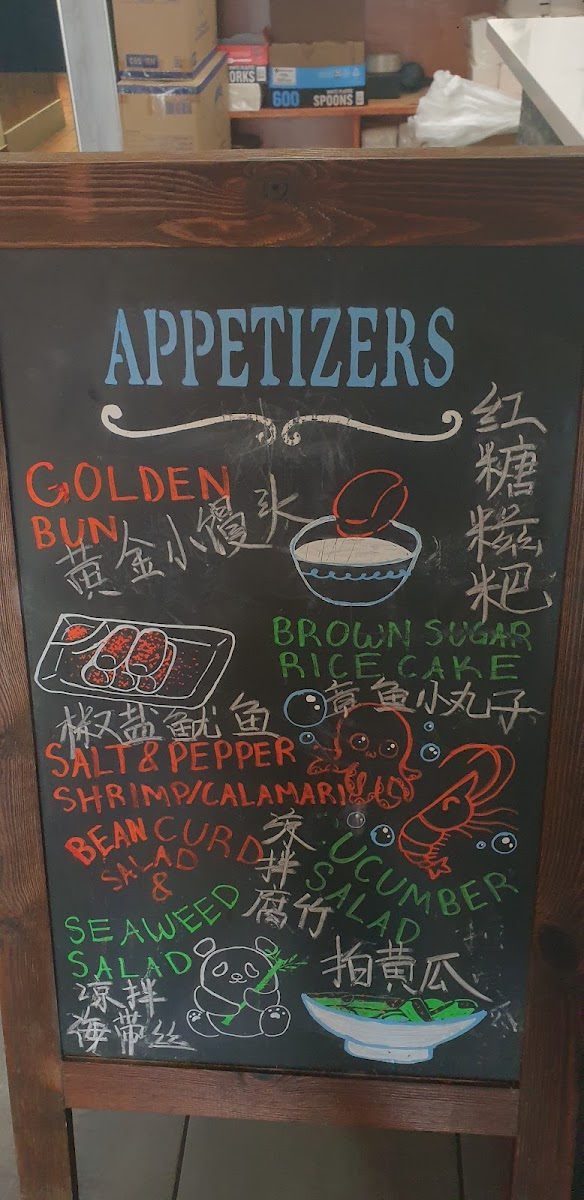 ORKS
600 SPOONS
APPETIZERS
GOLDEN
BUN
黄金小馒头
红糖糍粑
BROWN SUGAR
RICE CAKE
椒盐鱿鱼
章鱼小丸子
SALT & PEPPER
SHRIMP/CALAMARI
BEAN CURD
SALAD
&
凉拌
腐竹
UCUMBER
SALAD
SEAWEED
SALAD
凉拌
海带丝
拍黄瓜